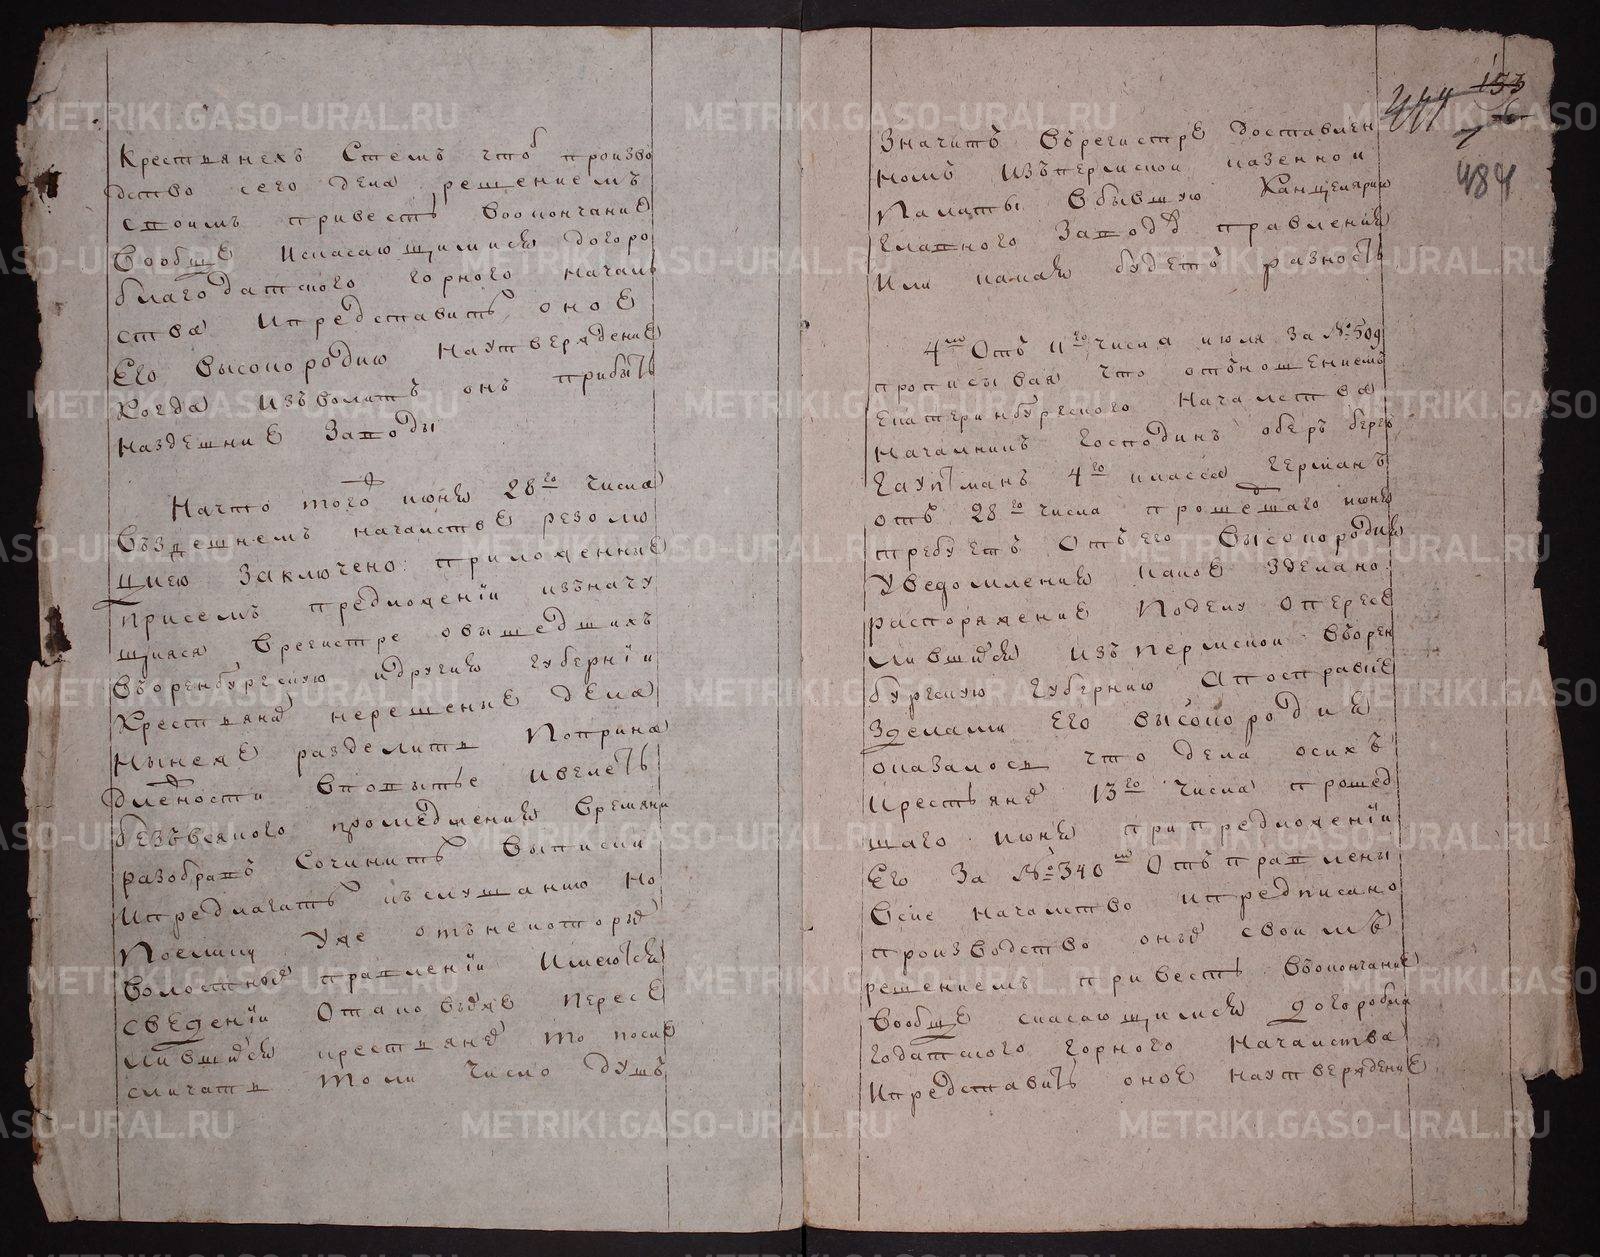 Крестьянехъ Стемъ чтоб произво
дство сего дела решениемъ
своимъ привесть воокончание
Вообще искасающимися догоро
благодатского горного началь
ства Ипредставить оное
Его высокородию наутверждение
Когда изъволитъ онъ прибыть
наздешние Заводы
Начто того июня 28го числа
Въздешнемъ началстве резолю
циею Заключено: приложенные
присемъ предложении изъначу
щияся Врегистре овышедшихъ
въоренбургскую идругия губернии
Крестьяня нерешение дела
Ныне же разделить Попринад
длежности вповытье ивелеть
безъвсякого промедления времяни
разобравъ Сочинить выписки
Ипредлагать къслушанию Но
Поелику Уже отънекоторых
волостных правлении Имеются
сведении Отаковыхже пересе
лившихся крестьянех то после
сличать толи число душъ
Значитъ Врегистре доставлен
номъ изъпермской казенной
Палаты Вбывшую Канцелярии
Главного Заводов правления
Или какая будетъ разность
4ю Отъ 11го числа июля За №509
прописывая что отъношениемъ
Екатеринбургского Началства
началникъ Господинъ оберъ берг
Гауптманъ 4го класса Германъ
отъ 28го числа прошедшаго июня
требуетъ Отъ его Высокородия
Уведомления какое зделано
распоряжение Поделу опересе
лившихся изъ пермской Въорен
бургскую губернию Апосправке
зделали Его высокородие
оказалось что дела осихъ
Крестьяне 13го числа прошед
шаго июня припредложении
Его За №340ю Отъправлены
Всие началство ипредписано
производство оных своимъ
решениемъ привесть Въокончание
вообще скасающимися догоробла
годатского Горного Началства
Ипредставить оное наутверждение
153
444
6
7
484
METRIKI.GASO-URAL.RU